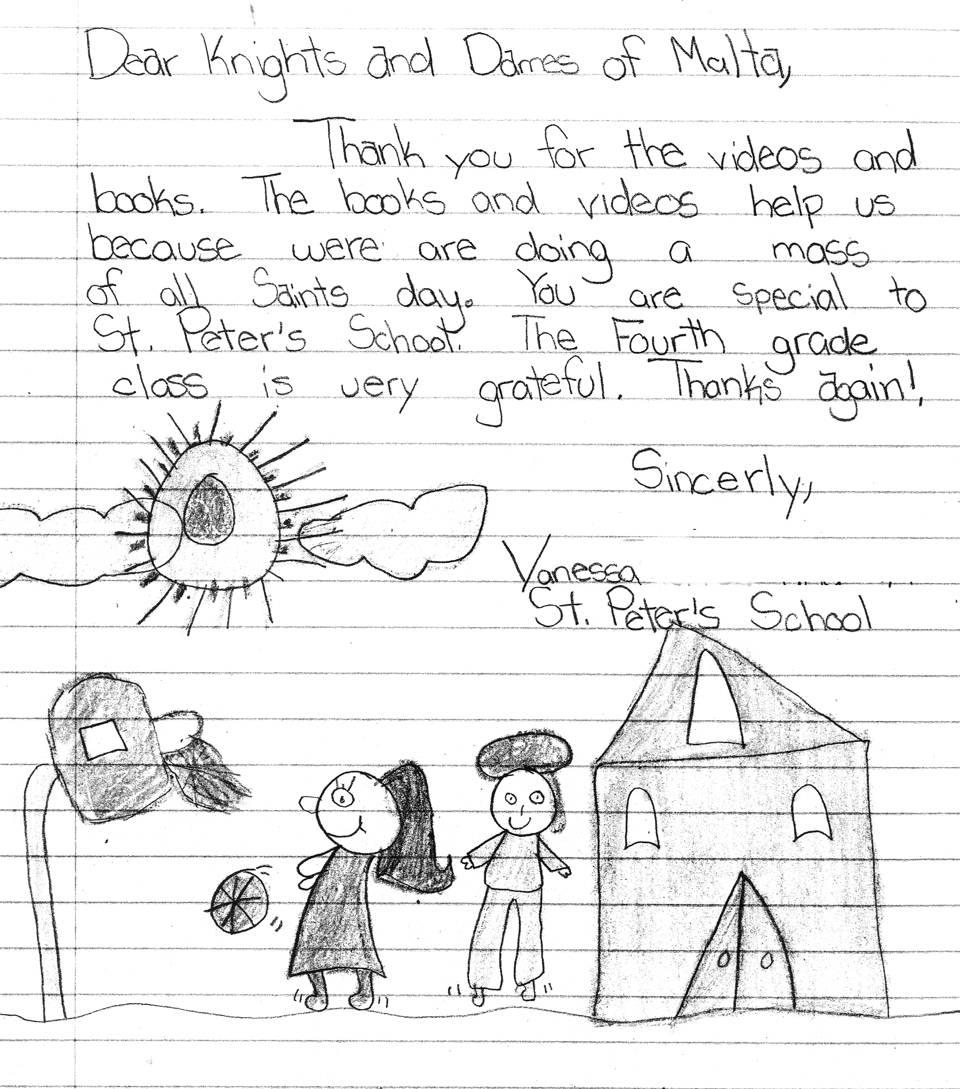 Dear Knights and Dames of Malta,
Thank you for the videos and
books. The books and videos help us
because were are doing a mass
of all Saints day. You are special to
St. Peter's School. The Fourth grade
class is very grateful. Thanks again!
Sincerly,
Vanessa
St. Peter's School